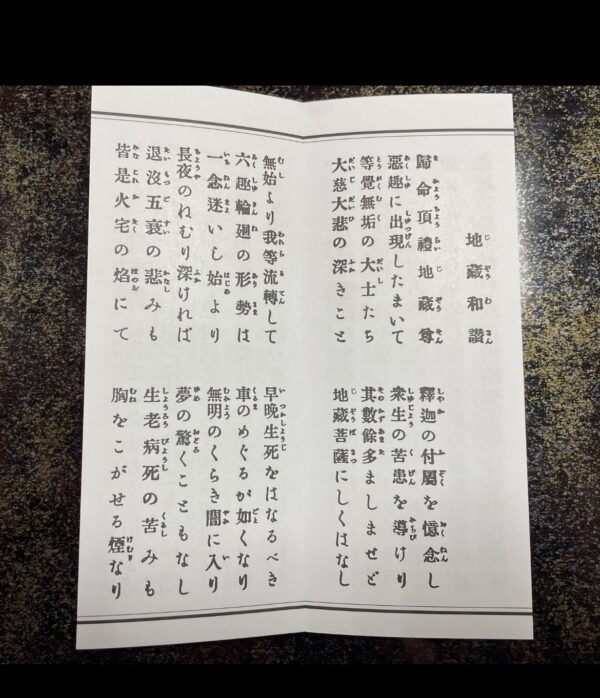 地蔵和讚
歸命頂禮地蔵尊　釋迦の付屬を憶念し
惡趣に出現したまいて　衆生の苦患を導けり
等覺無垢の大士たち　其數餘多ましませど
大慈大悲の深きこと　地蔵菩薩にしくはなし
無始より我等流轉して　早晩生死をはなるべき
六趣輪廻の形勢は　車のめぐるが如くなり
一念迷いし始より　無明のくらき闇に入り
長夜のねむり深ければ　夢の驚くこともなし
退沒五衰の悲みも　生老病死の苦みも
皆是火宅の焰にて　胸をこがせる煙なり